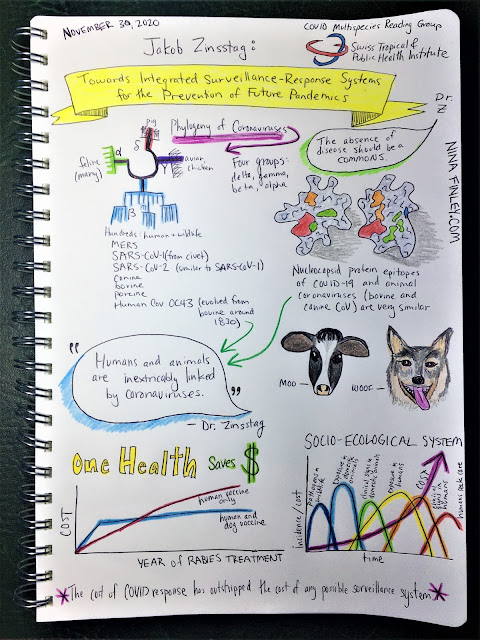 NOVEMBER 30, 2020
COVID Multispecies Reading Group
Jakob Zinsstag:
Swiss Tropical &
Public Health Institute
Towards Integrated Surveillance-Response Systems
for the Prevention of Future Pandemics
Dr.
Z
NINA FINLEY.COM
pig
δ
Phylogeny of Coronaviruses
α
feline
(many)
γ
avian
chicken
β
Four groups:
delta, gamma,
beta, alpha
The absence of
disease should be a
COMMONS.
Hundreds: human + wildlife
MERS
SARS-CoV-1 (from civet)
SARS-CoV-2 (similar to SARS-CoV-1)
canine
bovine
porcine
Human Cov OC43 (evolved from
bovine around
1830)
Nucleocapsid protein epitopes
of COVID-19 and animal
coronaviruses (bovine and
canine CoV) are very similar
"Humans and animals
are inextricably linked
by coronaviruses."
— Dr. Zinsstag
MOO
WOOF
One Health Saves $
COST
human vaccine
only
human and
dog vaccine
YEAR of RABIES TREATMENT
SOCIO-ECOLOGICAL SYSTEM
incidence/cost
pathogens in
wildlife
exposure in
domestic animals
clinical signs in
domestic animals
exposure in
humans
COST
clinical
signs in
humans
humans seek care
time
*The cost of COVID response has outstripped the cost of any possible surveillance system*